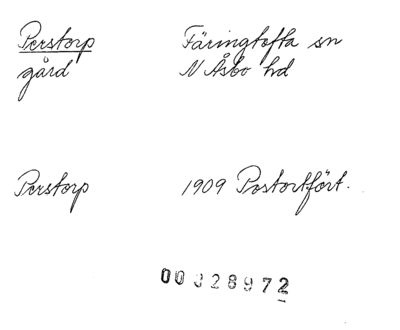 Perstorp Färingtofta sn
gård N Åsbo hd
Perstorp 1909 Postortfört.
00028972